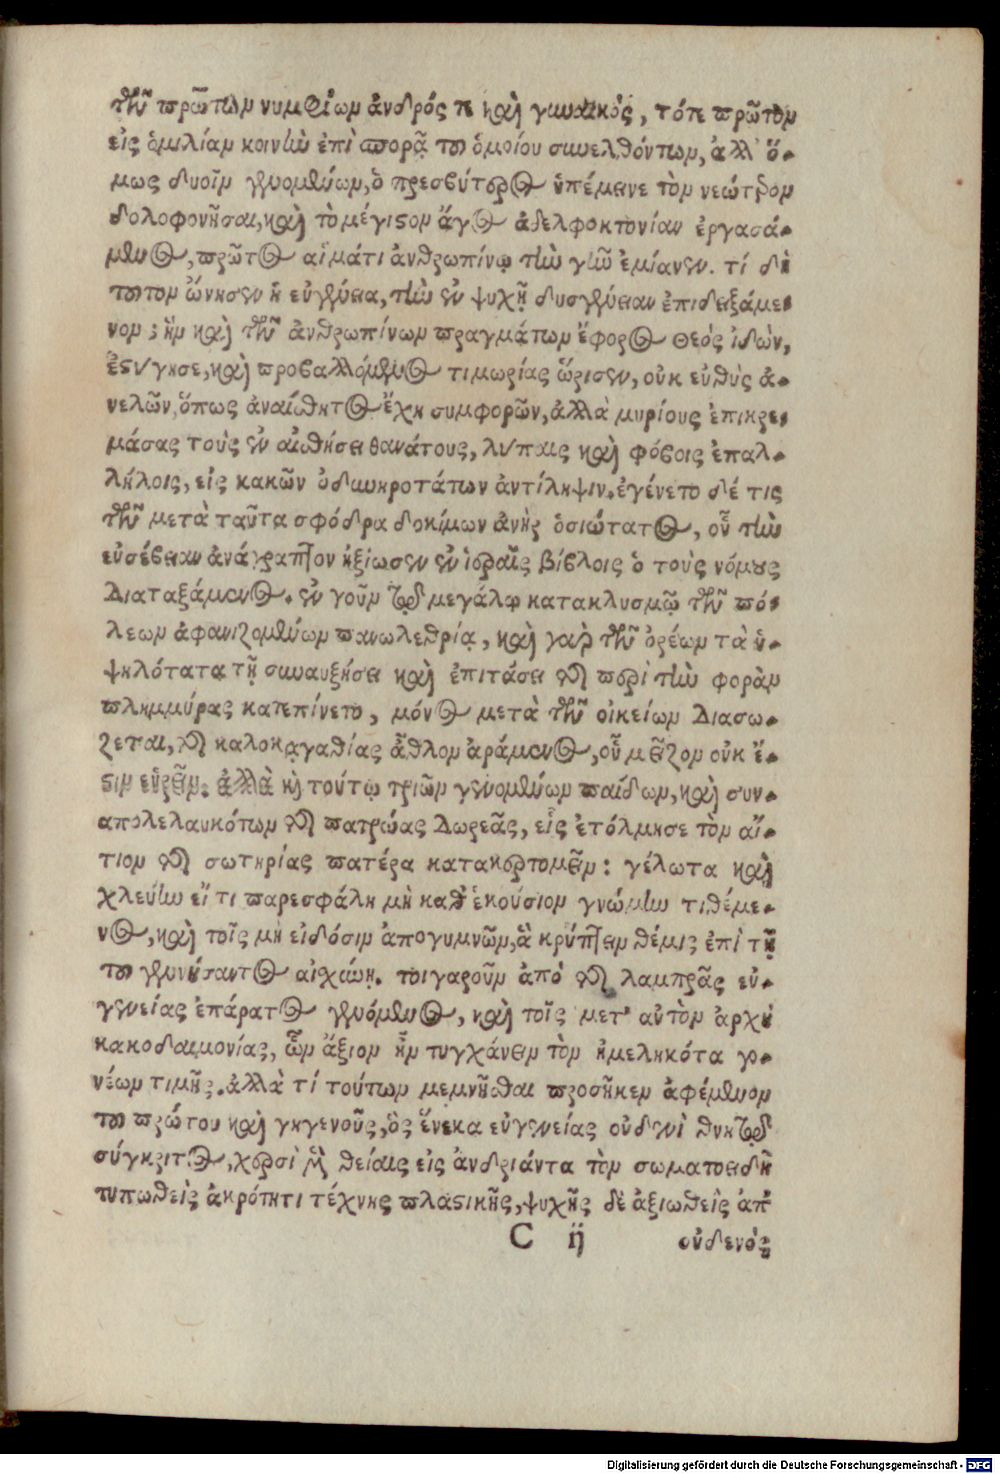 τῶν πρῶτον νυμφίων ἀνδρός τε καὶ γυναικός, τότε πρῶτον
εἰς ὁμιλίαν κοινὴν ἐπὶ σπορᾷ τοῦ ὁμοίου συνελθόντων, ἀλλ' ὅ-
μως δυοῖν γενομένων, ὁ πρεσβύτερος ὑπέμεινε τὸν νεώτερον
δολοφονῆσαι, καὶ τὸ μέγιστον ἄγος ἀδελφοκτονίαν ἐργασά-
μενος, πρῶτος αἵματι ἀνθρωπίνῳ τὴν γῆν ἐμίανεν. τί δὴ
τοῦτον ὤνησεν ἡ εὐγένεια, τὴν ἐν ψυχῇ δυσγένειαν ἐπιδειξάμε-
νον; ἣν καὶ τῶν ἀνθρωπίνων πραγμάτων ἔφορος θεὸς ἰδὼν,
ἐστύγησε, καὶ προβαλλόμενος τιμωρίας ὥρισεν, οὐκ εὐθὺς ἀ-
νελὼν, ὅπως ἀναίσθητος ἔχῃ συμφορῶν, ἀλλὰ μυρίους ἐπικρε-
μάσας τοὺς ἐν αἰσθήσει θανάτους, λύπαις καὶ φόβοις ἐπαλ-
λήλοις, εἰς κακῶν ὀδυνηροτάτων ἀντίληψιν. ἐγένετο δέ τις
τῶν μετὰ ταῦτα σφόδρα δοκίμων ἀνὴρ ὁσιώτατος, οὗ τὴν
εὐσέβειαν ἀνάγραπτον ἠξίωσεν ἐν ἱεραῖς βίβλοις ὁ τοὺς νόμους
Διαταξάμενος. ἐν γοῦν τῷ μεγάλῳ κατακλυσμῷ τῶν πό-
λεων ἀφανιζομένων πανωλεθρίᾳ, καὶ γὰρ τῶν ὀρέων τὰ ὑ-
ψηλότατα τῇ συναυξήσει καὶ ἐπιτάσει τῆς περὶ τὴν φορὰν
πλημμύρας κατεπίνετο, μόνος μετὰ τῶν οἰκείων Διασω-
ζεται, τῆς καλοκαγαθίας ἆθλον ἀράμενος, οὗ μεῖζον οὐκ ἔ-
στιν εὑρεῖν. ἀλλὰ κἠ τούτῳ τριῶν γενομένων παίδων, καὶ συν-
απολελαυκότων τῆς πατρῴας Δωρεᾶς, εἷς ἐτόλμησε τὸν αἴ-
τιον τῆς σωτηρίας πατέρα κατακερτομεῖν: γέλωτα καὶ
χλεύην εἴ τι παρεσφάλη μὴ καθ' ἑκούσιον γνώμην τιθέμε-
νος, καὶ τοῖς μὴ εἰδόσιν ἀπογυμνῶν, ἃ κρύπτειν θέμις ἐπὶ τῇ
τοῦ γεννήσαντος αἰσχύνῃ. τοιγαροῦν ἀπὸ τῆς λαμπρᾶς εὐ-
γενείας ἐπάρατος γενόμενος, καὶ τοῖς μετ' αὐτὸν ἀρχὴ
κακοδαιμονίας, ὧν ἄξιον ἦν τυγχάνειν τὸν ἠμεληκότα γο-
νέων τιμῆς. ἀλλὰ τί τούτων μεμνῆσθαι προσῆκεν ἀφέμενον
τοῦ πρώτου καὶ γηγενοῦς, ὃς ἕνεκα εὐγενείας οὐδενὶ θνητῷ
σύγκριτος, χερσὶ μὲν θείαις εἰς ἀνδριάντα τὸν σωματοειδῆ
τυπωθεὶς ἀκρότητι τέχνης πλαστικῆς, ψυχῆς δὲ ἀξιωθεὶς ἀπ'
C ij οὐδενὸς
Digitalisierung gefördert durch die Deutsche Forschungsgemeinschaft - DFG